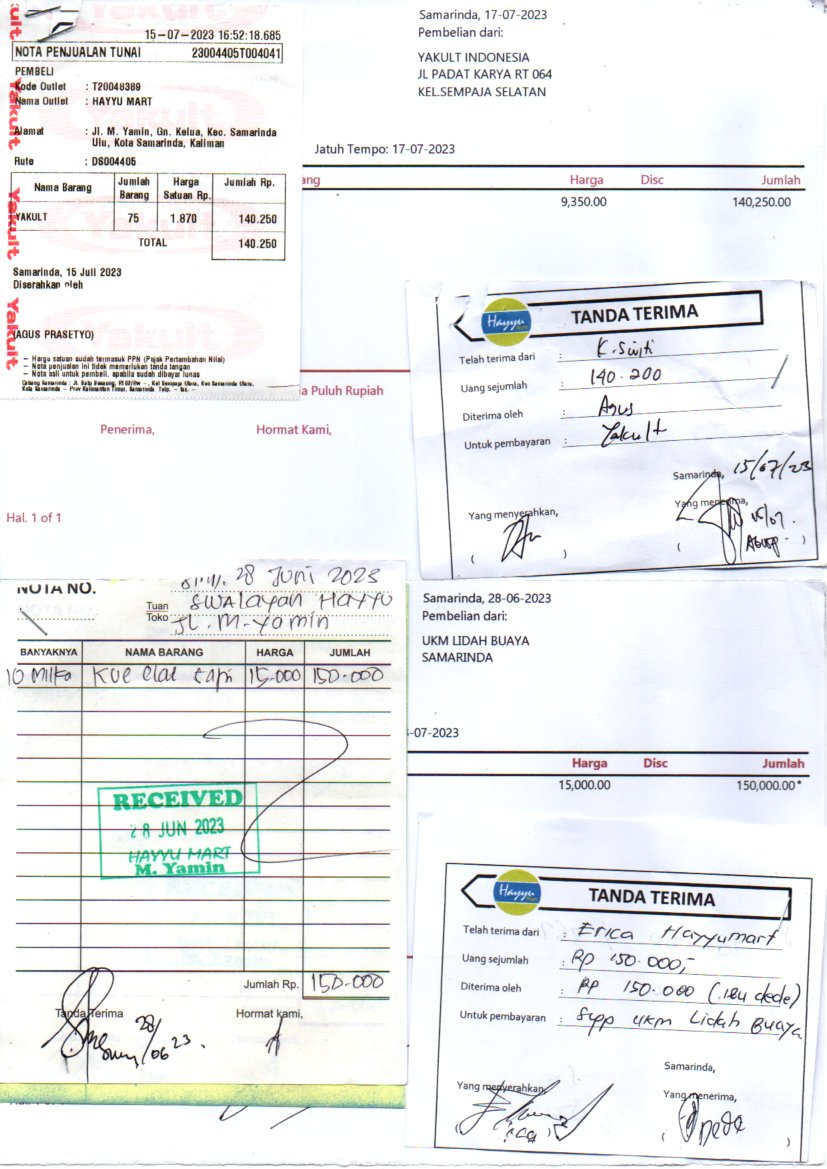 15-07-2023 16:52:18.685
NOTA PENJUALAN TUNAI 23004405T004041
PEMBELI
Kode Outlet : T20048389
Nama Outlet : HAYYU MART
Alamat : Jl. M. Yamin, Gn. Kelua, Kec. Samarinda
Ulu, Kota Samarinda, Kaliman
Rute : DS004405
Nama Barang Jumlah Barang Harga Satuan Rp. Jumlah Rp.
YAKULT 75 1.870 140.250
TOTAL 140.250
Samarinda, 15 Juli 2023
Diserahkan oleh
(AGUS PRASETYO)
- Harga satuan sudah termasuk PPN (Pajak Pertambahan Nilai)
- Nota penjualan ini tidak memerlukan tanda tangan
- Nota asli untuk pembeli, apabila sudah dibayar lunas
Yakult
Yakult
Yakult
Samarinda, 17-07-2023
Pembelian dari:
YAKULT INDONESIA
JL PADAT KARYA RT 064
KEL.SEMPAJA SELATAN
Jatuh Tempo: 17-07-2023
ang Harga Disc Jumlah
9,350.00 140,250.00
a Puluh Rupiah
Penerima, Hormat Kami,
Hal. 1 of 1
Hayyu
TANDA TERIMA
Telah terima dari :
Uang sejumlah : 140.200
Diterima oleh : Agus
Untuk pembayaran : Yakult
Samarinda, 15/07/23
Yang menyerahkan, Yang menerima,
NOTA NO.
28 Juni 2023
Tuan
Toko
SWalayan HAYYU
JL. M-Yamin
BANYAKNYA NAMA BARANG HARGA JUMLAH
10 Mika Kue 15.000 150.000
RECEIVED
28 JUN 2023
HAYYU MART
M. Yamin
Jumlah Rp. 150.000
Tanda Terima Hormat kami,
28/06 23.
Samarinda, 28-06-2023
Pembelian dari:
UKM LIDAH BUAYA
SAMARINDA
-07-2023
Harga Disc Jumlah
15,000.00 150,000.00*
Hayyu
TANDA TERIMA
Telah terima dari : Erica Hayyumart
Uang sejumlah : Rp 150.000,-
Diterima oleh : Rp 150.000 (Ibu dede)
Untuk pembayaran : Supp ukm Lidah Buaya
Samarinda,
Yang menyerahkan, Yang menerima,